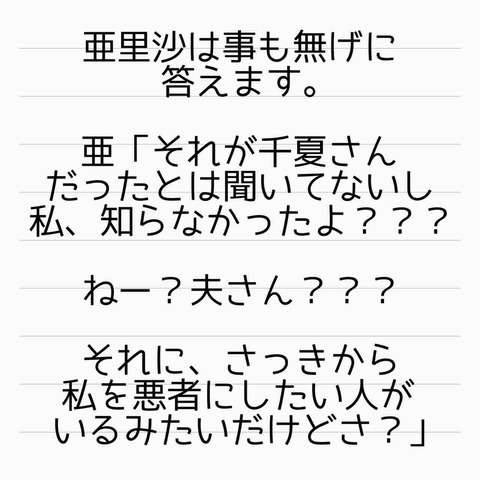 亜里沙は事も無げに
答えます。
亜「それが千夏さん
だったとは聞いてないし
私、知らなかったよ？？？
ねー？夫さん？？？
それに、さっきから
私を悪者にしたい人が
いるみたいだけどさ？」